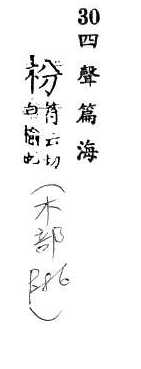 30 四聲篇海
枌 符云切
白榆也
(木部